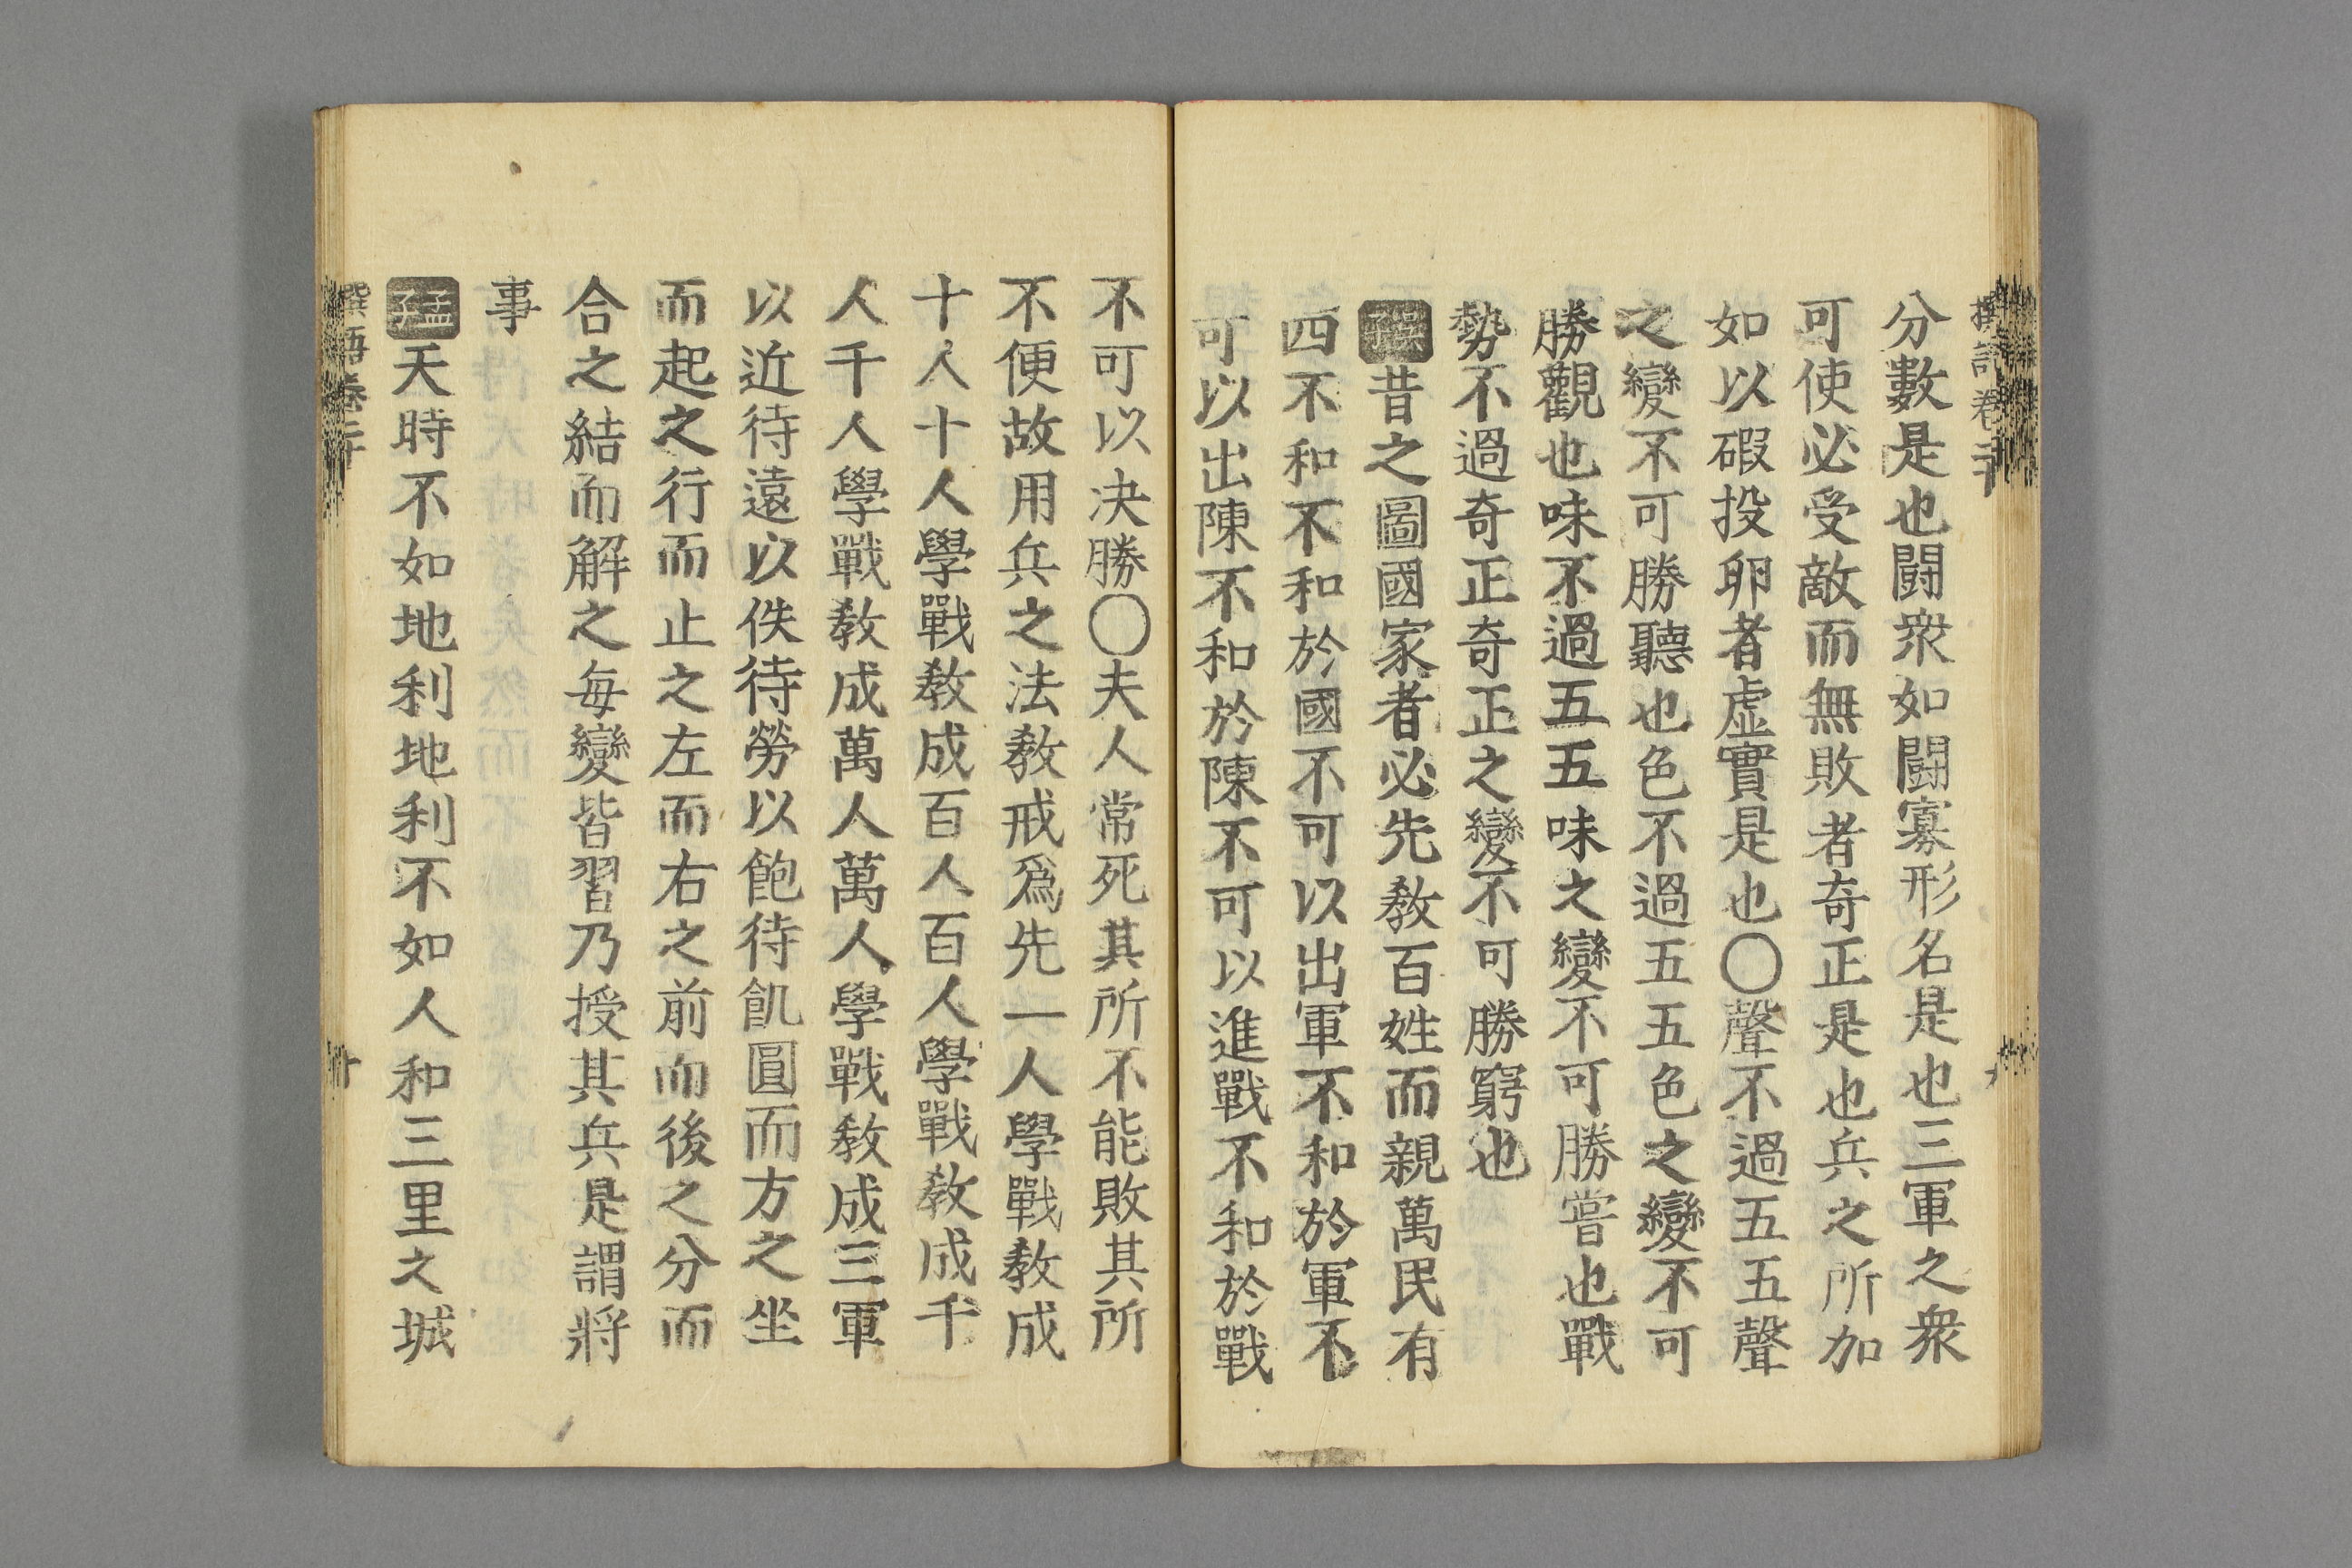 分數是也闘衆如闘寡形名是也三軍之衆
可使必受敵而無敗者奇正是也兵之所加
如以碬投卵者虚實是也〇聲不過五五聲
之變不可勝聽也色不過五五色之變不可
勝觀也味不過五五味之變不可勝嘗也戰
勢不過奇正奇正之變不可勝窮也
吳子昔之圖國家者必先敎百姓而親萬民有
四不和不和於國不可以出軍不和於軍不
可以出陳不和於陳不可以進戰不和於戰
不可以决勝〇夫人常死其所不能敗其所
不便故用兵之法敎戒爲先一人學戰敎成
十人十人學戰敎成百人百人學戰敎成千
人千人學戰敎成萬人萬人學戰敎成三軍
以近待遠以佚待勞以飽待飢圓而方之坐
而起之行而止之左而右之前而後之分而
合之結而解之每變皆習乃授其兵是謂將
事
孟子天時不如地利地利不如人和三里之城